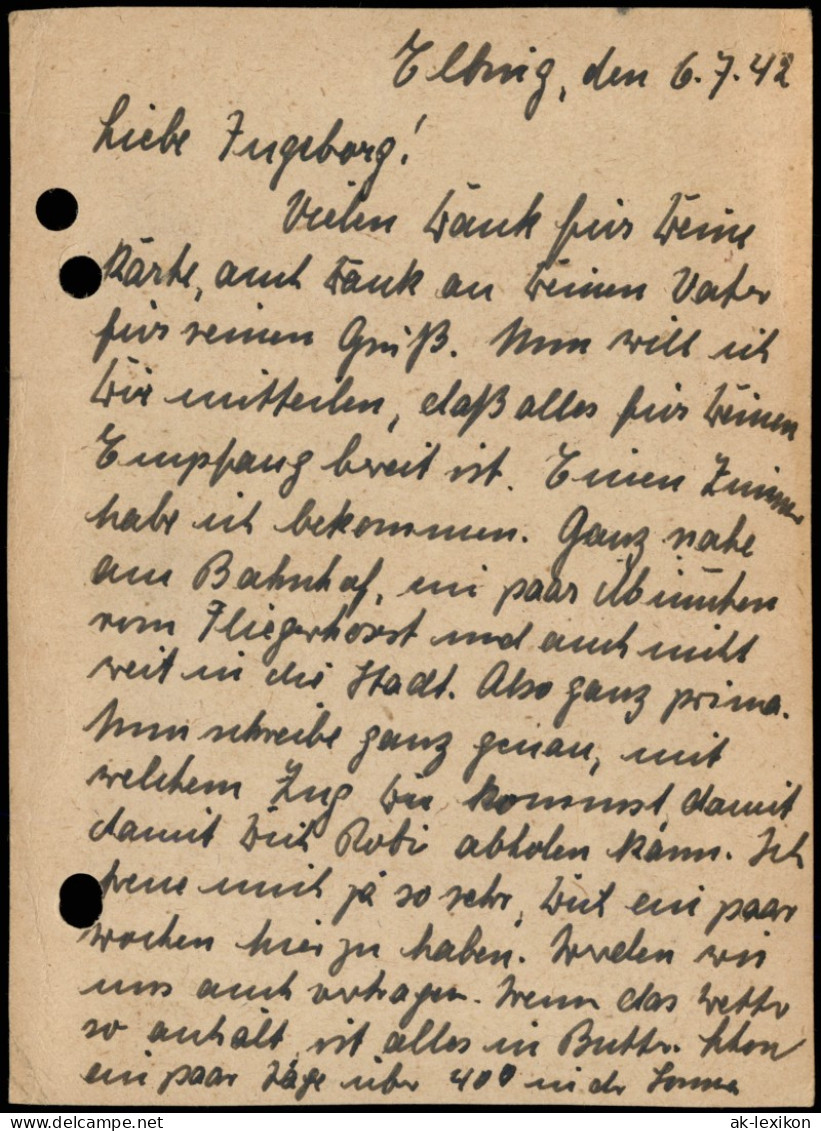 Elbing, den 6.7.42
Liebe Ingeborg!
Vielen Dank für Deine
Karte, auch Dank an Deinen Vater
für seinen Gruß. Nun will ich
Dir mitteilen, daß alles für Deinen
Empfang bereit ist. Einen Zimmer
habe ich bekommen. Ganz nahe
am Bahnhof, ein paar Minuten
vom Fliegerhorst und auch nicht
weit in die Stadt. Also ganz prima.
Nun schreibe ganz genau, mit
welchem Zug Du kommst, damit
damit Dich Robi abholen kann. Ich
freue mich ja so sehr, Dich ein paar
Wochen hier zu haben. Werden wir
uns auch vertragen. Wenn das Wetter
so anhält, ist alles in Butter. Schon
ein paar Tage über 40° in der Sonne
ak-lexikon